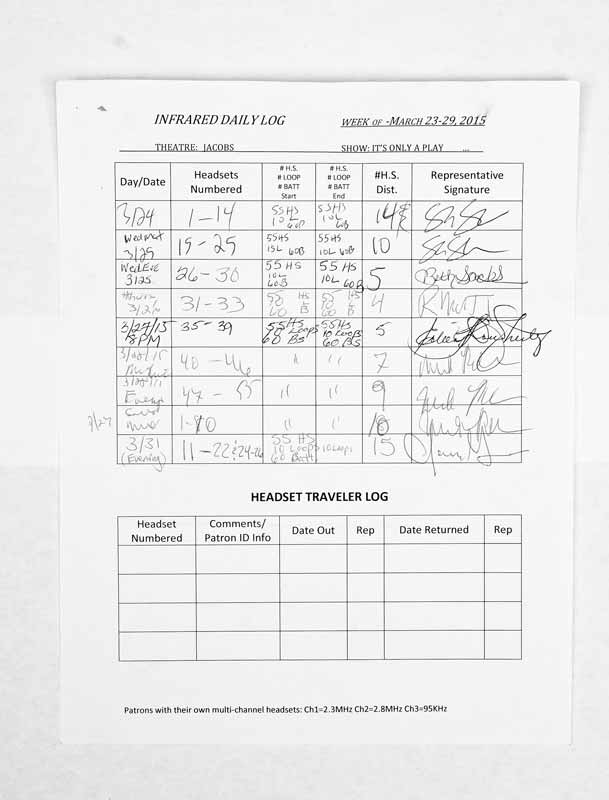 INFRARED DAILY LOG WEEK OF -MARCH 23-29, 2015
THEATRE: JACOBS SHOW: IT'S ONLY A PLAY ...
Day/Date
Headsets
Numbered
# H.S.
# LOOP
# BATT
Start
# H.S.
# LOOP
# BATT
End
#H.S.
Dist.
Representative
Signature
3/24 1-14 55HS 10L 60B 55HS 10L 60B 14
Wed Mat 3/25 15-25 55HS 15L 60B 55HS 10L 60B 10
Wed Eve 3/25 26-30 55 HS 10L 60B 55 HS 10L 60B 5 Betty Sacks
31-33 HS L B HS L B 4
3/27/15 8PM 35-39 55HS 10 Loops 60 BS 55HS 10 Loops 60 BS 5
40-46 " " 7
47-55 " " 9
3/29 1-10 " " 10
3/31 (Evening) 11-22 & 24-26 55 HS 10 Loops 60 Batt 10 Loops 15
HEADSET TRAVELER LOG
Headset
Numbered
Comments/
Patron ID Info
Date Out Rep Date Returned Rep
Patrons with their own multi-channel headsets: Ch1=2.3MHz Ch2=2.8MHz Ch3=95KHz